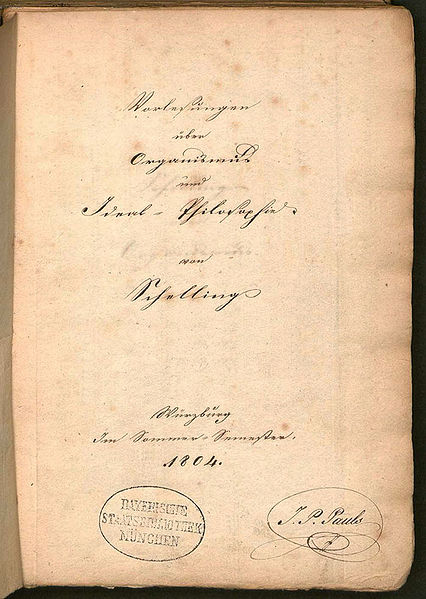 Vorlesungen
über
Organismus
und
Ideal - Philosophie
von
Schelling
Würzburg
Im Sommer-Semester.
1804.
BAYERISCHE
STAATSBIBLIOTHEK
MÜNCHEN
J. P. Pauls